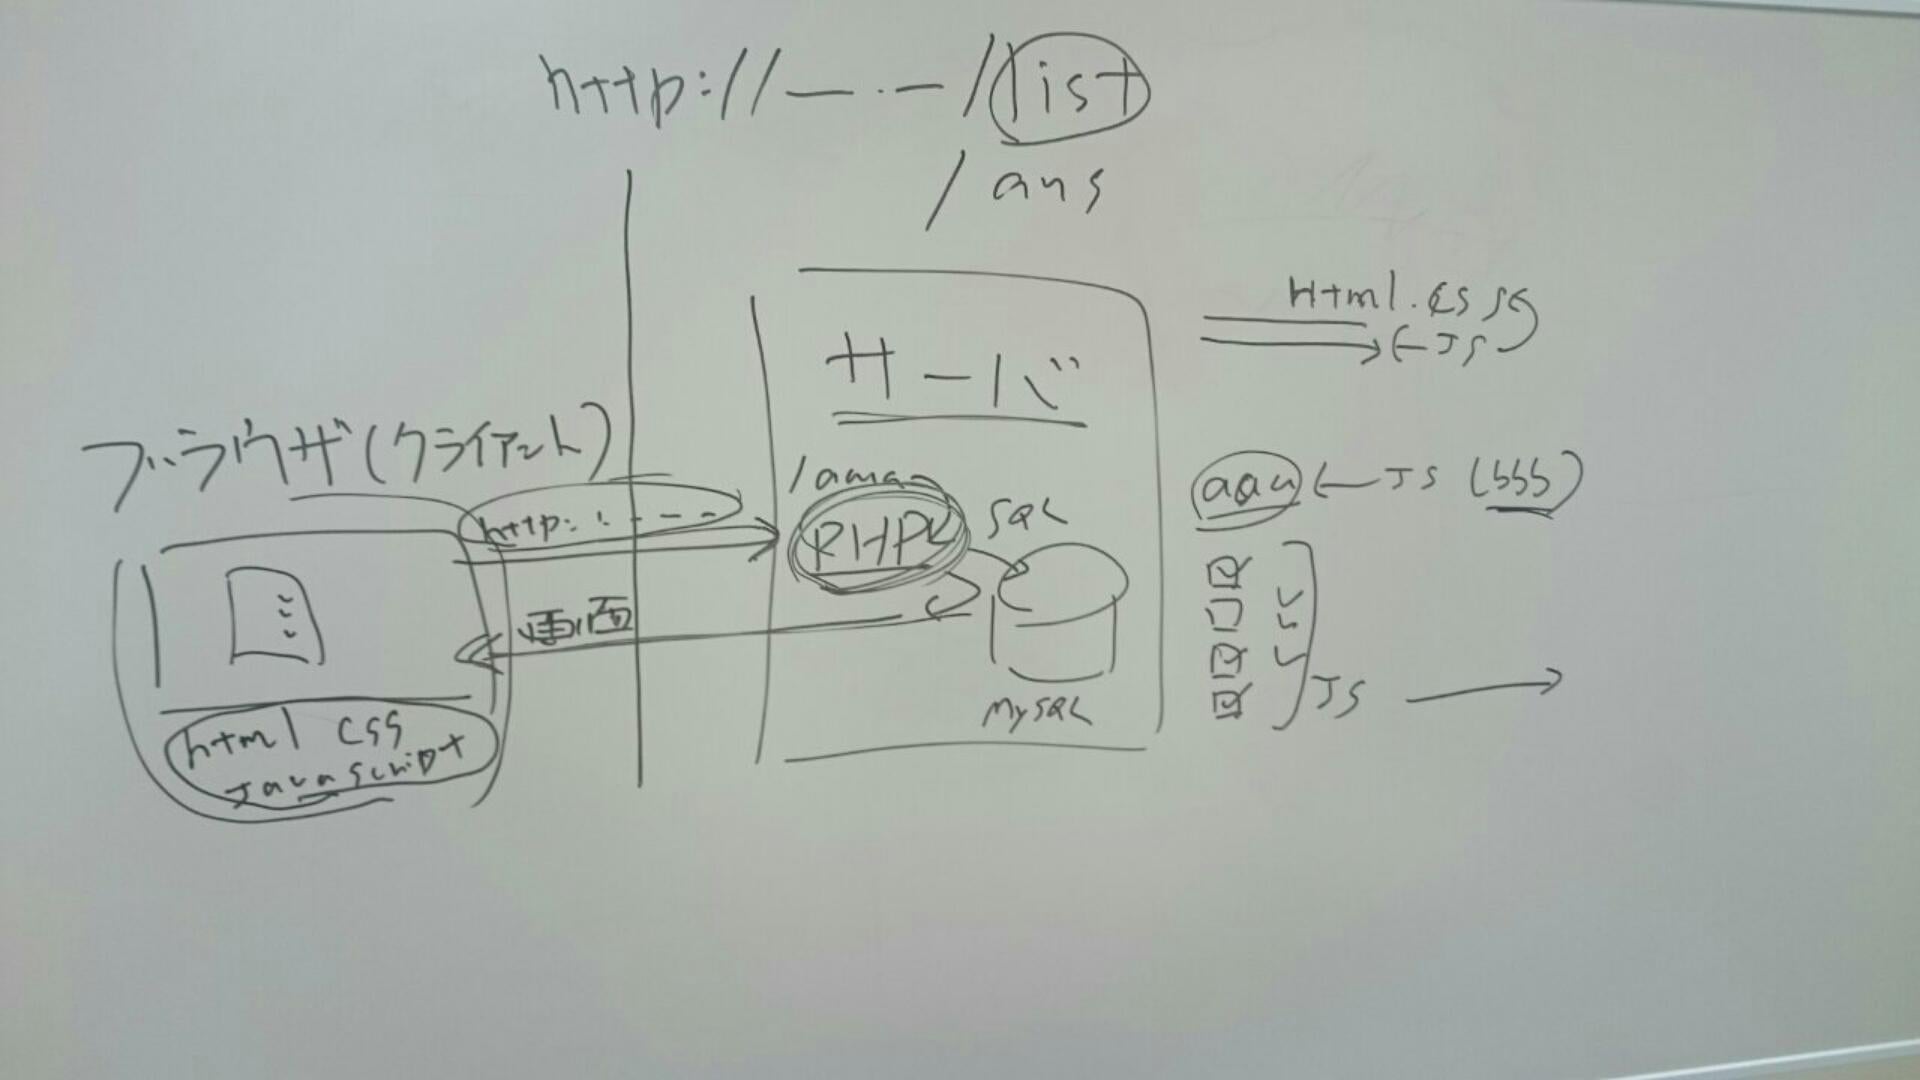 http://—.—/list
/ans
サーバ
Html.css
←JS
ブラウザ(クライアント)
http:
PHP
SQL
aaa ← JS (bbb)
画面
MySQL
JS
html css
Javascript